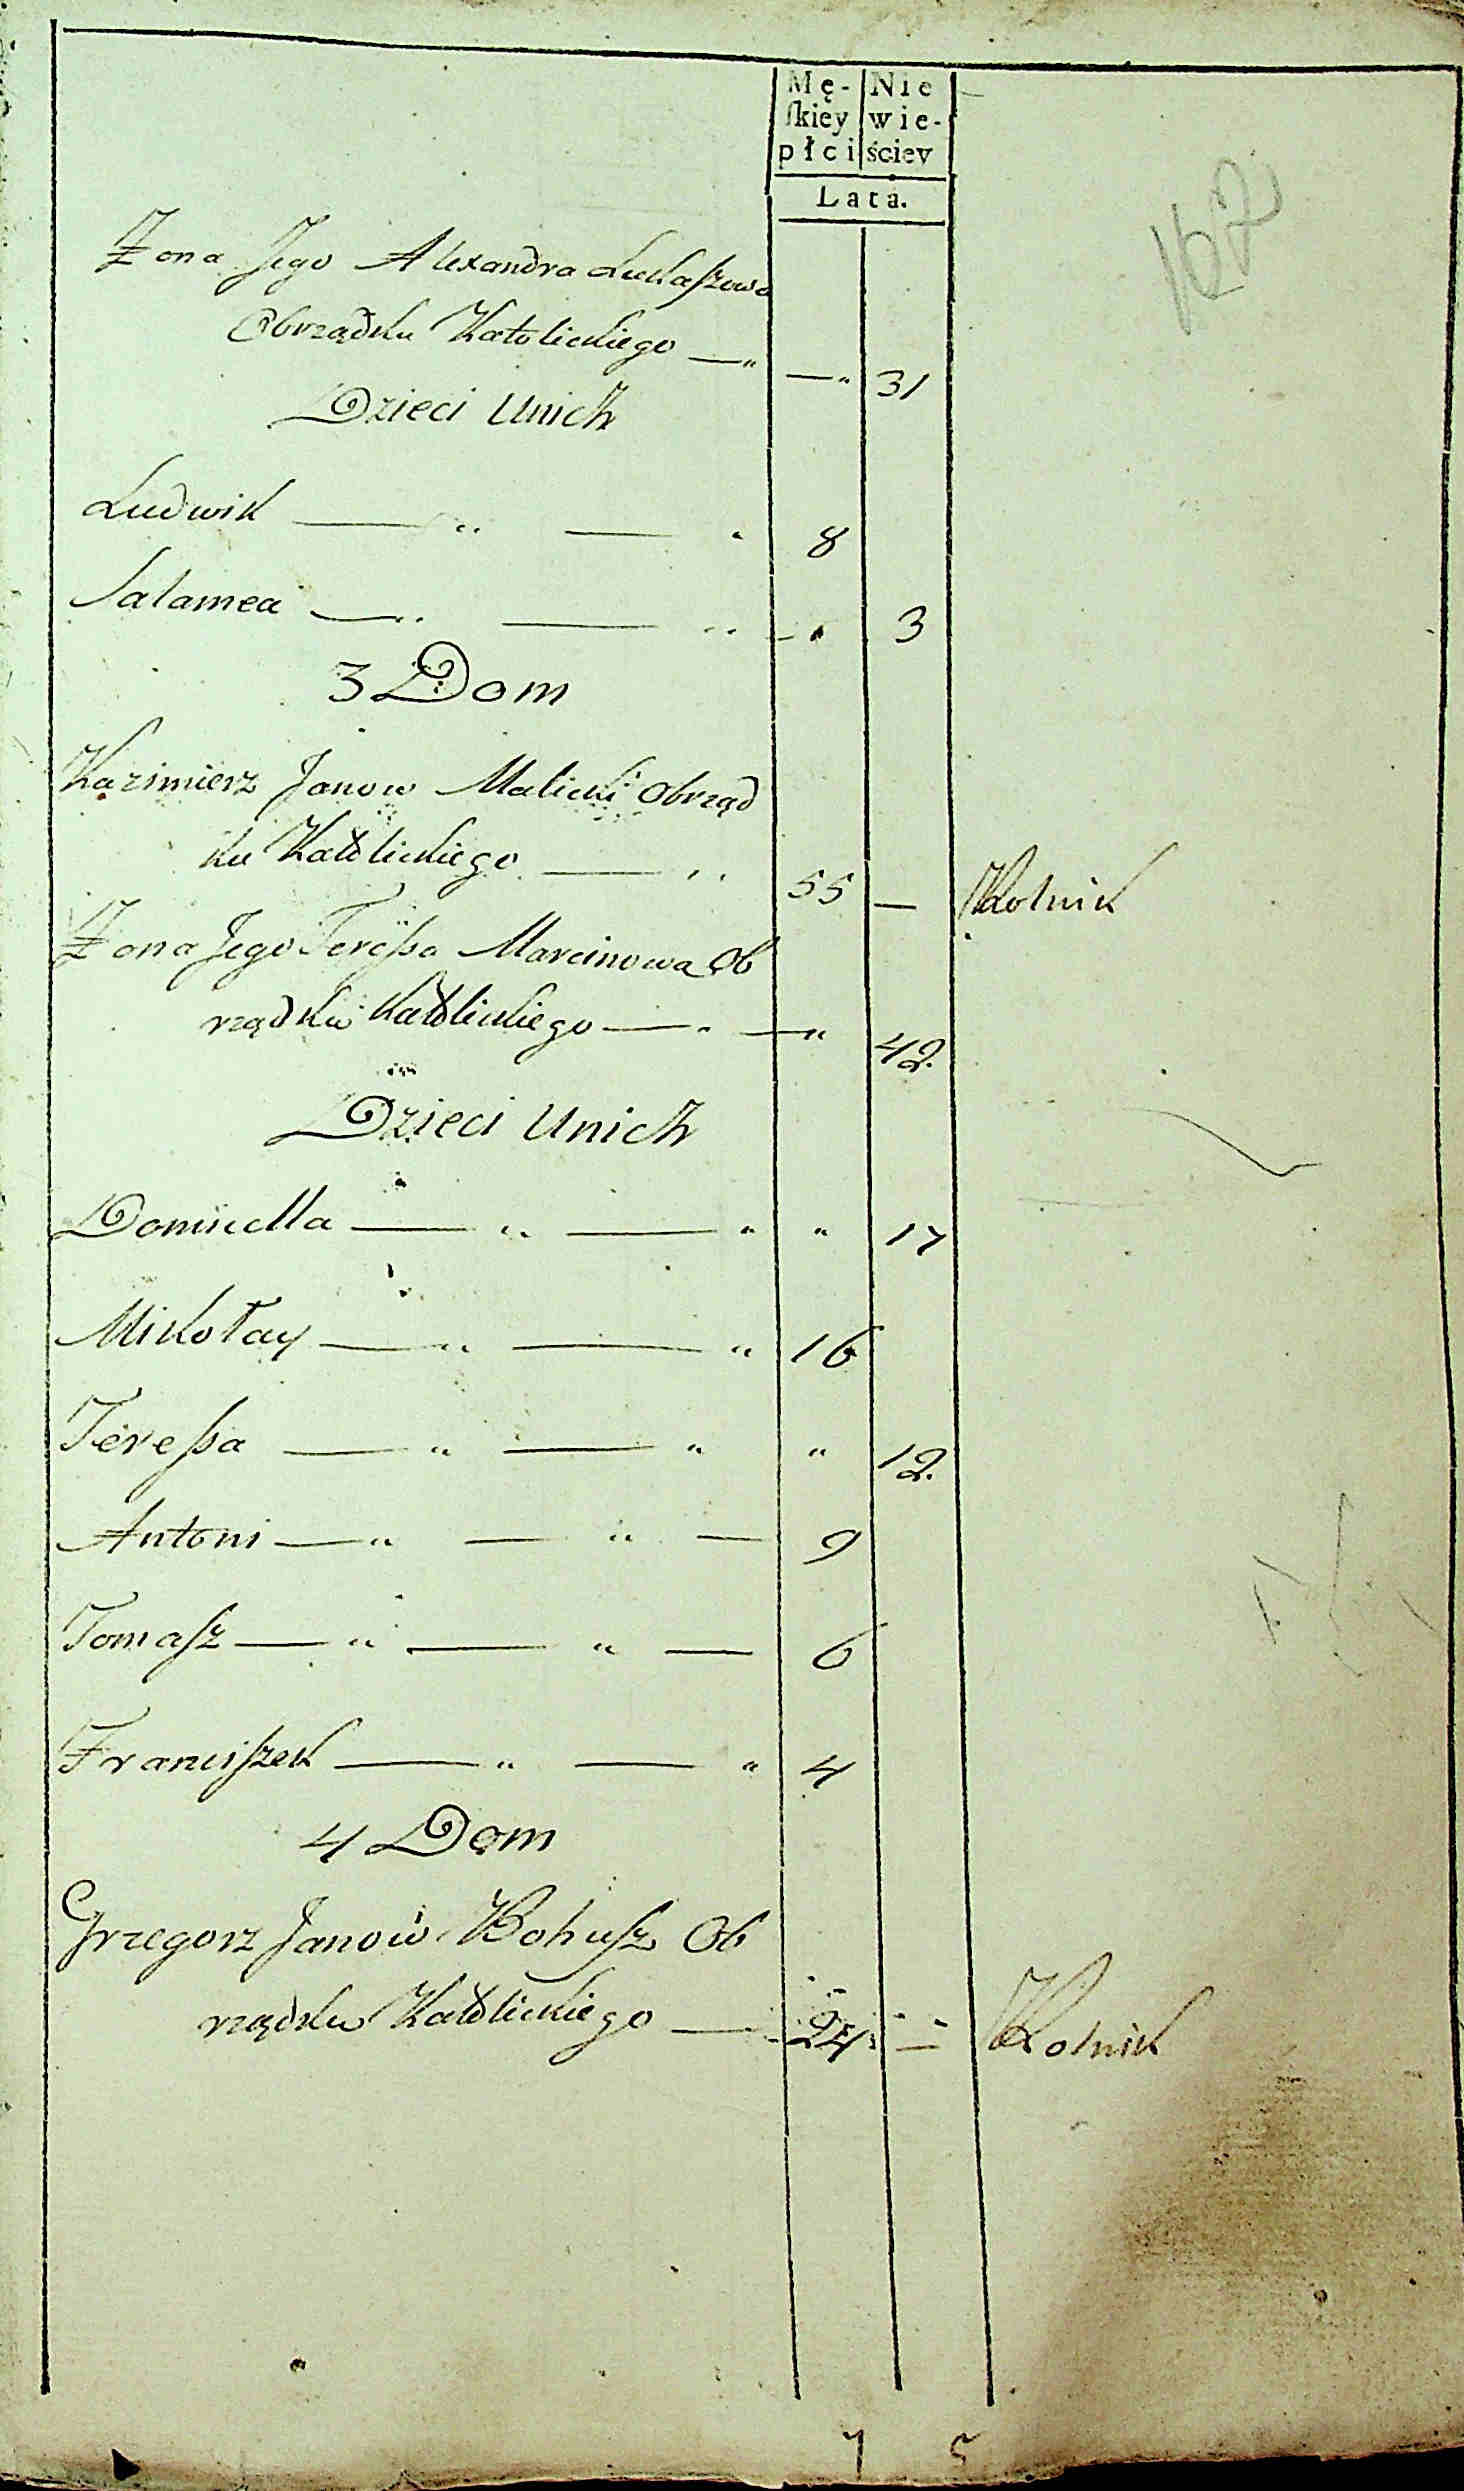 Mę- Nie
skiey wie-
płci ściey
Lata.
162
Zona Jego Alexandra Łukaszowa
Obrządku Katolickiego — " — " 31
Dzieci Unich
Ludwik — " — " 8
Salamea — " — " — " 3
3 Dom
Kazimierz Janow Malicki Obrząd
ku Katolickiego — " 55 — Rolnik
Zona Jego Teressa Marcinowa Ob
rządku Katolickiego — " — " 42.
Dzieci Unich
Domicella — " — " " 17
Mikołay — " — " 16
Teressa — " — " " 12.
Antoni — " — " — 9
Tomasz — " — " — 6
Franciszek — " — " 4
4 Dom
Grzegorz Janow Bohusz Ob
rządku Katolickiego — 24 — Rolnik
7 5